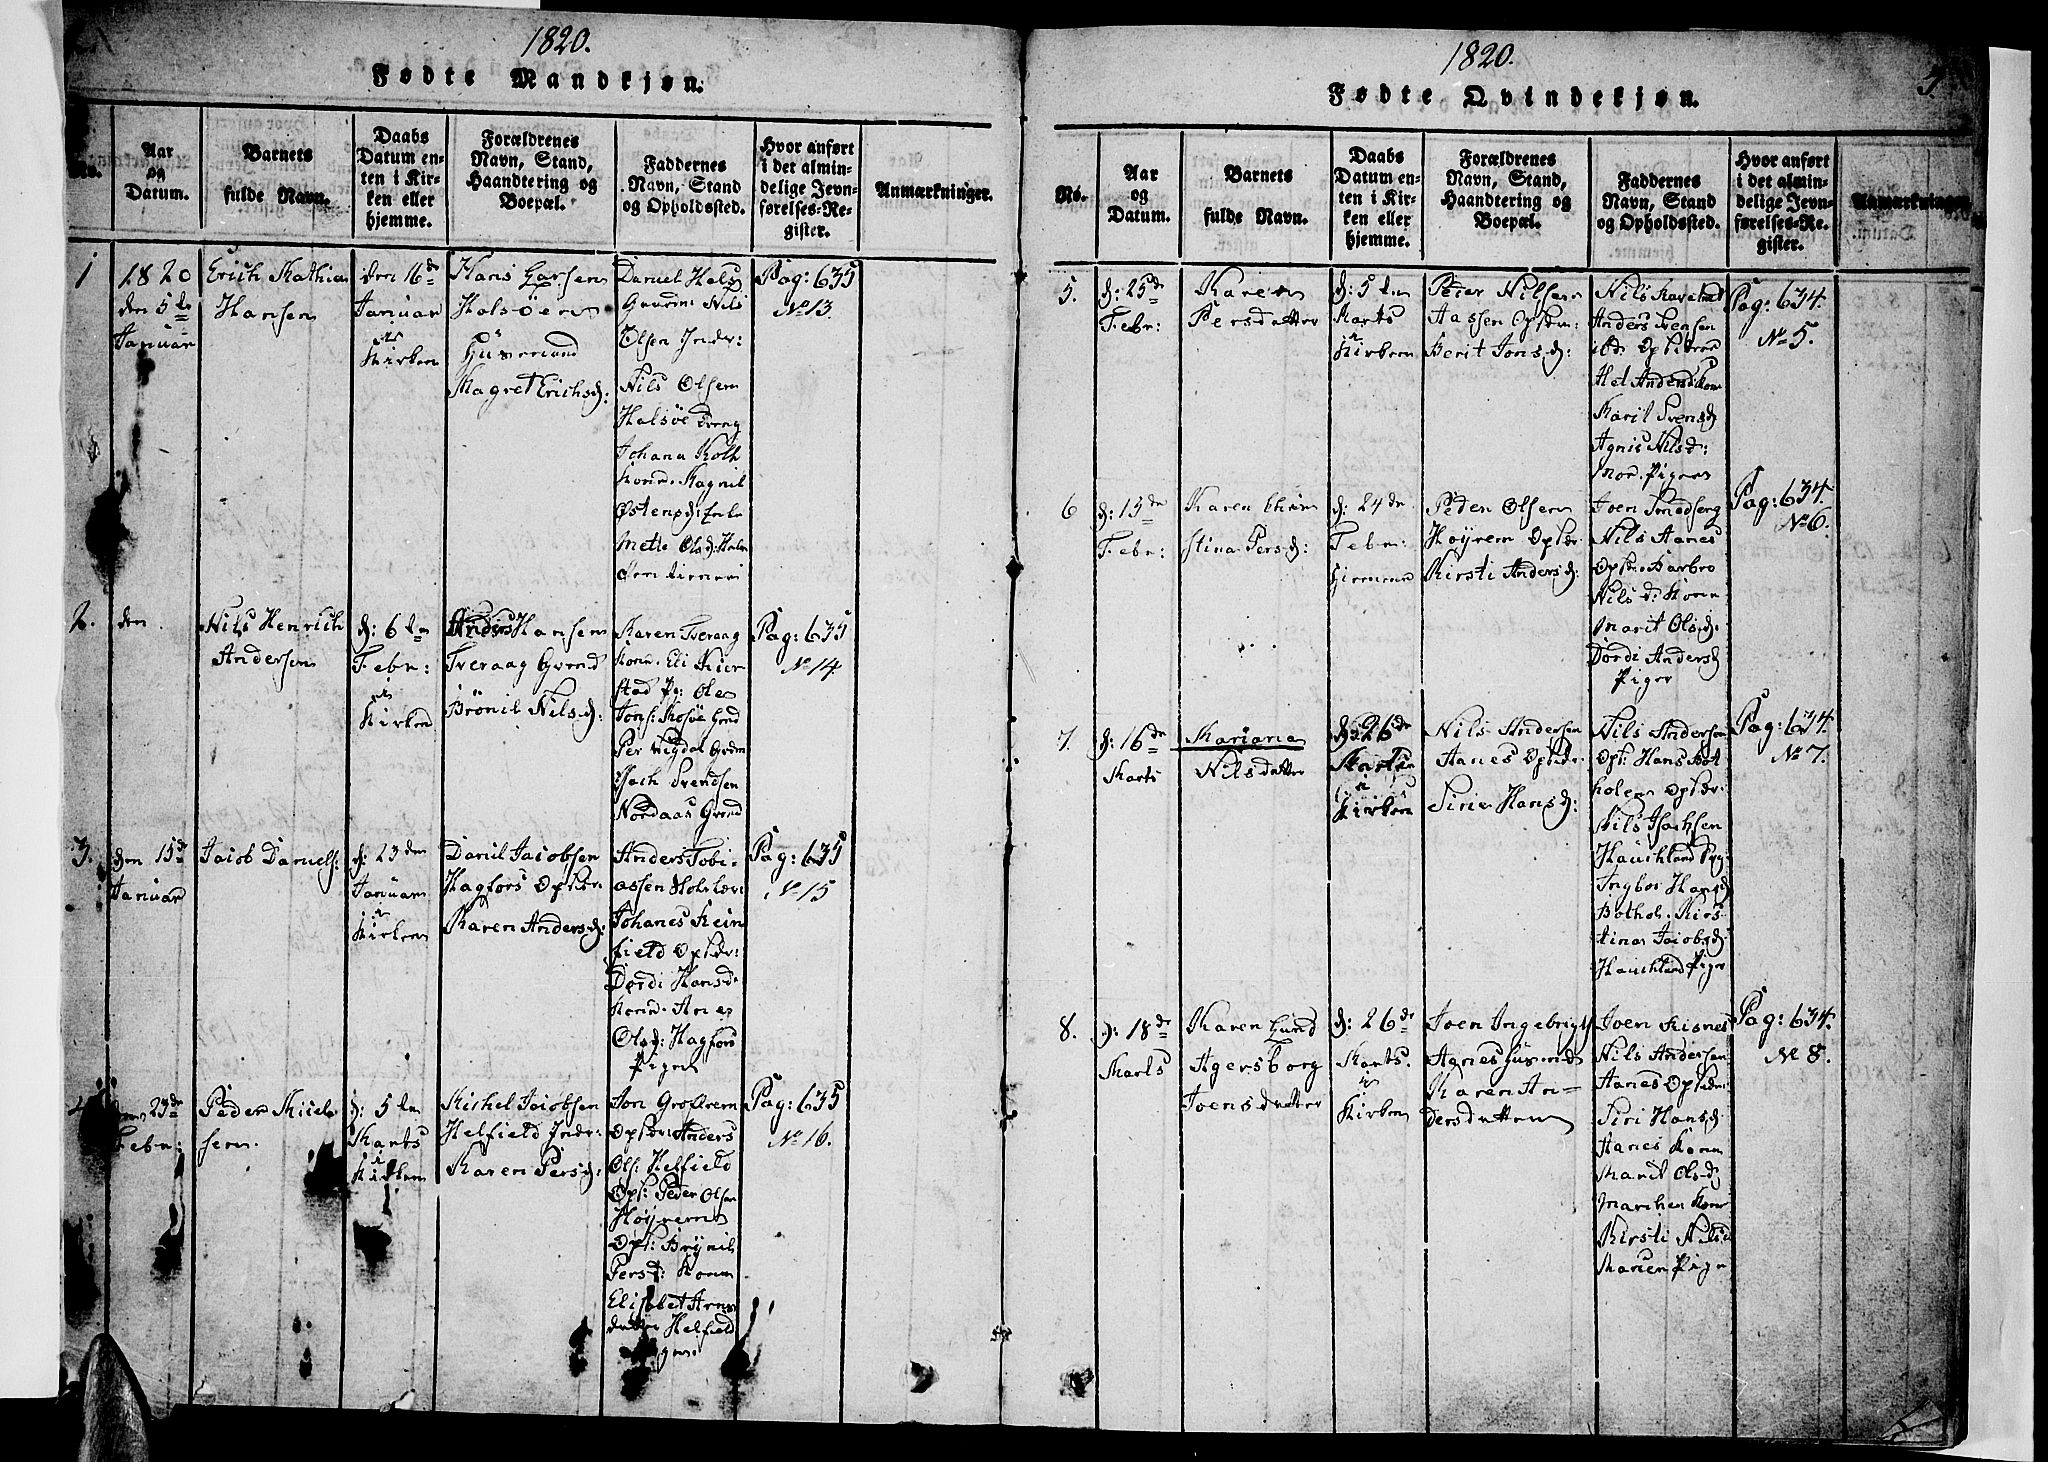 1820.
Fødte Mandkjøn.
No.
Aar
og
Datum.
Barnets
fulde Navn.
Daabs
Datum en-
ten i Kir-
ken eller
hjemme.
Forældrenes
Navn, Stand,
Haandtering og
Boepæl.
Faddernes
Navn, Stand
og Opholdssted.
Hvor anført
i det almin-
delige Jevn-
førelses-Re-
gister.
Anmærkninger.
1
1820
den 5te
Januar
Erich Mathias
Hansen
den 16de
Januar
i
Kirken
Hans Larsen
Halsøen
Huusmand
Magret Erichsd:
Daniel Hals
Nils
Olsen Inder:
Nils Olsen
Halsøe Dreng
Johana
Kone. Magnil
Mette Olsd:
Pag: 635
No 13.
2.
den
Nils Henrich
Andersen
d: 6te
Febr:
i
Kirken
Anders Hansen
Tveraag Gmd
Brønil Nilsd:
Karen Tveraag
Kone. Eli
stad Pg: Ole
Jons:
Per Vigdal
Isach Svendsen
Nordaas
Pag: 635
No 14.
3.
den 15de
Januar
Jacob Daniels:
d: 23den
Januar
i
Kirken
Daniel Jacobsen
Hagfors Opsder:
Karen Andersd:
Anders Tobi-
assen
Johanes Rein
field Opsder:
Dordi Hansd:
Kone. Ane
Olsd: Hagfors
Piger
Pag: 635
No 15
4
23de
Febr:
Peder Michel
sen.
d: 5te
Marts
i
Kirken
Michel Jacobsen
Helfield Inder:
Karen Persd:
Jon
Opsder: Anders
Ols: Helfield
Ops: Peder Olsen
Høyrem
Ops: Brynil
Persd: Kone
Elisabet Arne
datter Helfield
Pag: 635
No 16.
1820.
5
Fødte Qvindekjøn.
No.
Aar
og
Datum.
Barnets
fulde Navn.
Daabs
Datum en-
ten i Kir-
ken eller
hjemme.
Forældrenes
Navn, Stand,
Haandtering og
Boepæl.
Faddernes
Navn, Stand
og Opholdssted.
Hvor anført
i det almin-
delige Jevn-
førelses-Re-
gister.
Anmærkninger
5.
d: 25de
Febr:
Karen
Persdatter
d: 5te
Marts
i
Kirken
Peder Nilsen
Aassen
Berit Jonsd:
Nils
Anders Svensen
Maril Svensd
Agnis Nilsd:
Piger
Pag: 634.
No 5.
6
d: 15de
Febr:
Karen Chri
stina Persd:
d: 24de
Febr:
hiemme
Peder Olsen
Høyrem Opsder
Kirsti Andersd:
Joen Smedseng
Nils Aanes
Opsd: Barbro
Nils d: Kone
Marit Olsd:
Dordi Andersd
Piger
Pag: 634.
No 6.
7.
d: 16de
Marts
Mariana
Nilsdatter
d: 26de
Marts
i
Kirken
Nils Andersen
Aanes Opsder
Siri Hansd:
Nils Andersen
Ops: Hans Bot
holen Opsder:
Nils Isachsen
Hauchland
Ingbor Hansd
Bothol. Kirs-
tina Jacobsd
Hauchland Pige
Pag: 634.
No 7.
8.
d: 18de
Marts
Karen Lund
Agersborg
Joensdatter
d: 26de
Marts.
i
Kirken
Joen Ingebrigts
Agnes Husmd
Karen An-
dersdatter
Joen
Nils Andersen
Aanes Opsder:
Siri Hansd:
Aanes Kone
Marit Olsd
Kone
Kirsti Nilsd
Pige
Pag: 634.
No 8.